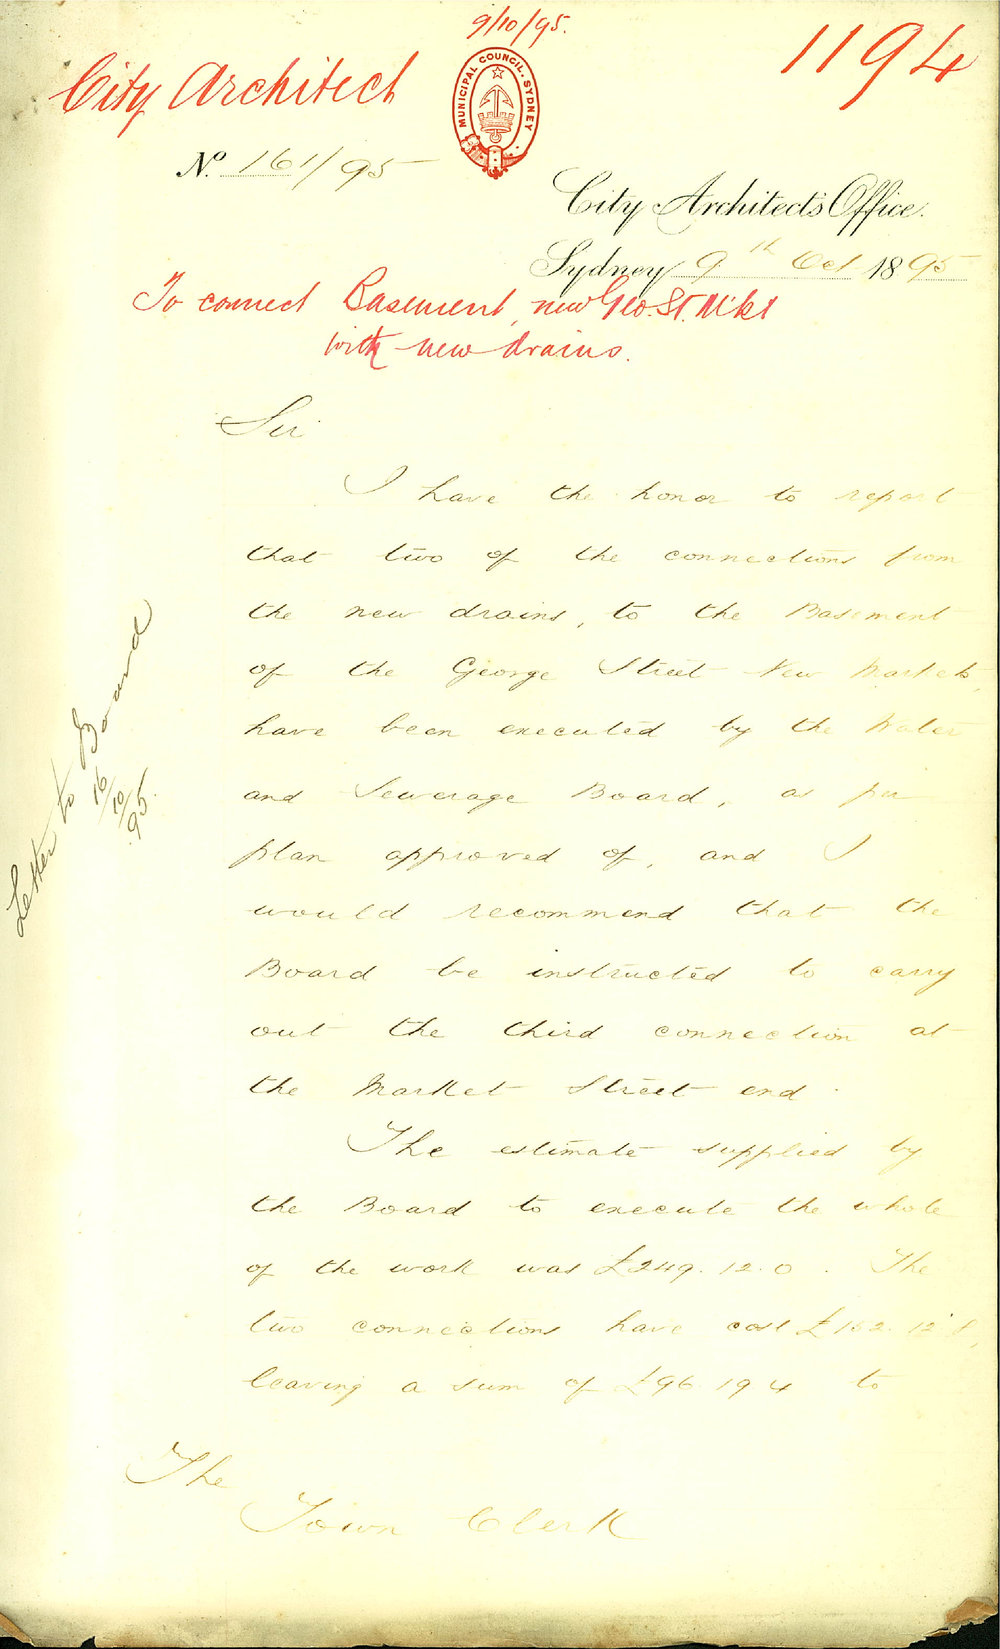 9/10/95.
City Architect
1194
MUNICIPAL COUNCIL. SYDNEY
No. 161/95
City Architect's Office.
Sydney 9th Oct 1895
To connect Basement, new Geo. St. Mkt
with new drains.
Sir
I have the honor to report
that two of the connections from
the new drains, to the Basement
of the George Street New Markets,
have been executed by the Water
and Sewerage Board, as per
plan approved of, and I
would recommend that the
Board be instructed to carry
out the third connection at
the Market Street end.
The estimate supplied by
the Board to execute the whole
of the work was £249.12.0. The
two connections have cost £152.12.8,
leaving a sum of £96.19.4 to
The
Town Clerk
Letter to Board
16/10/95.